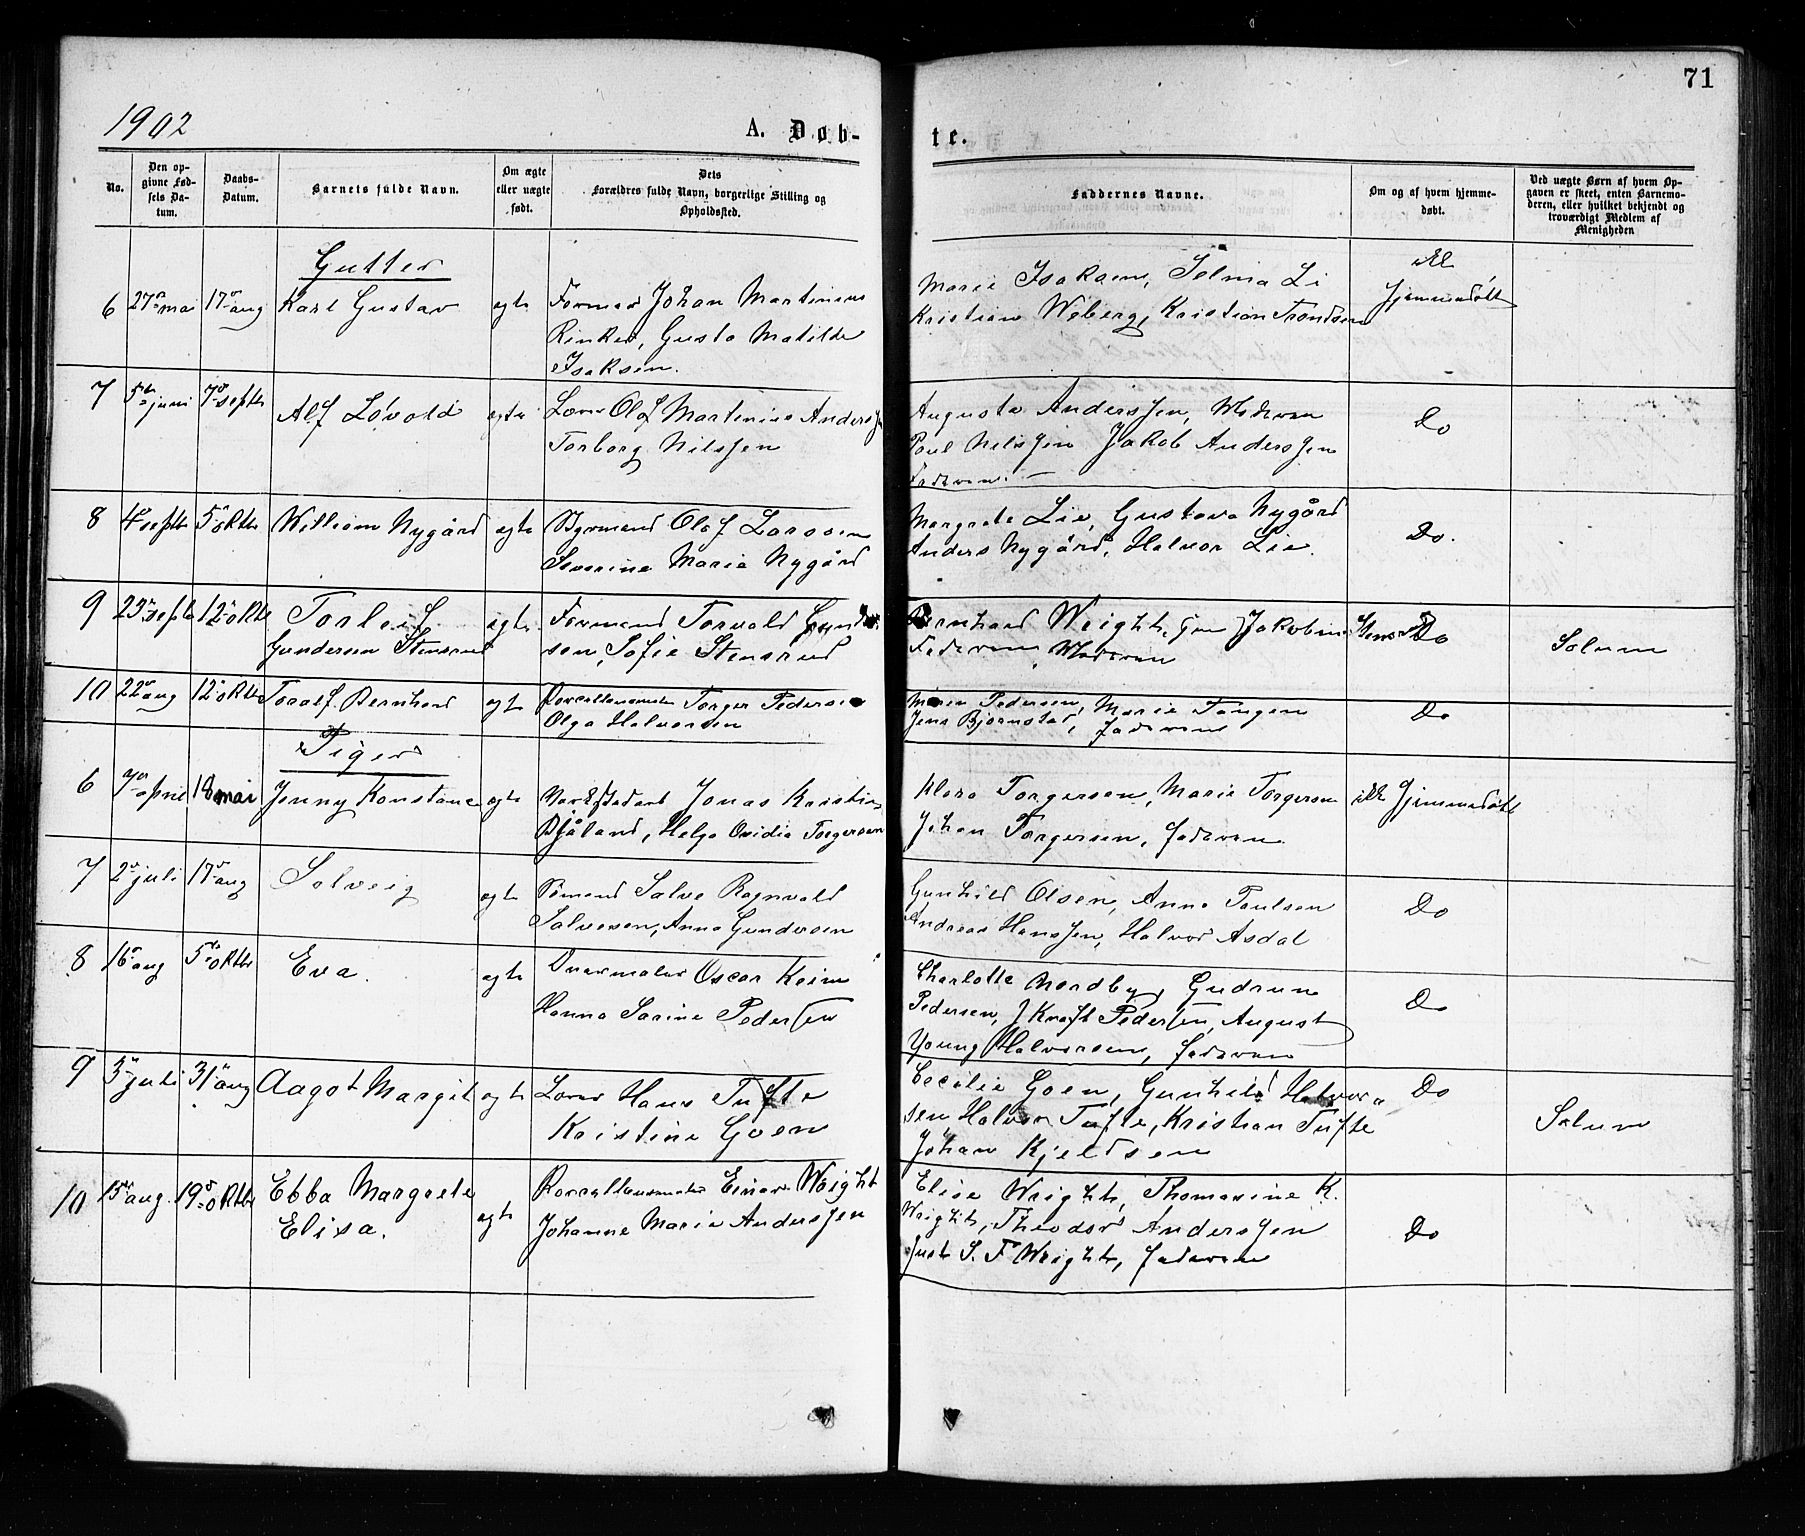 71
1902
A. Døb-
te.
No.
Den op-
givne Fød-
sels Da-
tum.
Daabs-
Datum.
Barnets fulde Navn.
Om ægte
eller uægte
født.
Dets
Forældres fulde Navn, borgerlige Stilling og
Opholdssted.
Faddernes Navne.
Om og af hvem hjemme-
døbt.
Ved uægte Børn af hvem Op-
gaven er skeet, enten Barnemo-
deren, eller hvilket bekjendt og
troværdigt Medlem af
Menigheden
Gutter
6 27de mai 17de aug Karl Gustav egte Former Johan Martinius
Rinker, Gusta Matilde
Isaksen.
Marie Isaksen, Selma Li
Kristian Wiberg, Kristian Trondsen
ikke
hjemmedøbt
7 5te juni 7de septbr Alf Løvold egte Lærer Olaf Martinius Anderssen
Torborg Nilssen
Augusta Anderssen, Moderen
Poul Nilssen Jakob Anderssen
Faderen. —
Do
8 4de septbr 5te oktbr William Nygård egte Styrmand Olaf Larssen
Severine Marie Nygård
Margrete Lie, Gustava Nygård
Anders Nygård, Halvor Lie.
Do.
9 23de septbr 12te oktbr Torleif
Gundersen Stensrud
egte Formand Torvald Gunder-
sen, Sofie Stensrud
Bernhard Wright, Jakobine Stensrud
Faderen, Moderen
Do Solum
10 22de aug 12te oktbr Toralf Bernhard egte Porcellænsmaler Torger Pedersen
Olga Halvorsen
Maren Pedersen, Marie Tangen
Jens Bjørnstad, Faderen
Do
Piger
6 7de april 18 mai Jenny Konstance egte Verksarbeid. Jonas Kristian
Bjåland, Helga Ovidia Torgersen
Klara Torgersen, Marie Torgersen
Johan Torgersen, Faderen
ikke hjemmedøbt
7 2de juli 17de aug Solveig egte Sømand Salve Ragnvald
Salvesen, Anna Gundersen
Gunhild Olsen, Anna Paulsen
Andreas Hanssen, Halvor Asdal
Do
8 16de aug 5te oktbr Eva. egte Oscar Keim
Hanna Sarine Pedersen
Charlotte Nordby, Gudrun
Pedersen, J Kraft Pedersen, August
Young Halvorsen, Faderen
Do
9 3de juli 31te aug Aagot Margit egte Lærer Hans Tufte
Kristine Goen
Cecilie Goen, Gunhild Halvor-
sen, Halvor Tufte, Kristian Tufte
Johan Kjeldsen
Do Solum
10 15de aug. 19de oktbr Ebba Margrete
Elisa.
egte Porcellænsmaler Einar Wright
Johanne Marie Anderssen
Elise Wright, Thomasine K.
Wright, Theodor Anderssen
Just S. F Wright, Faderen
Do